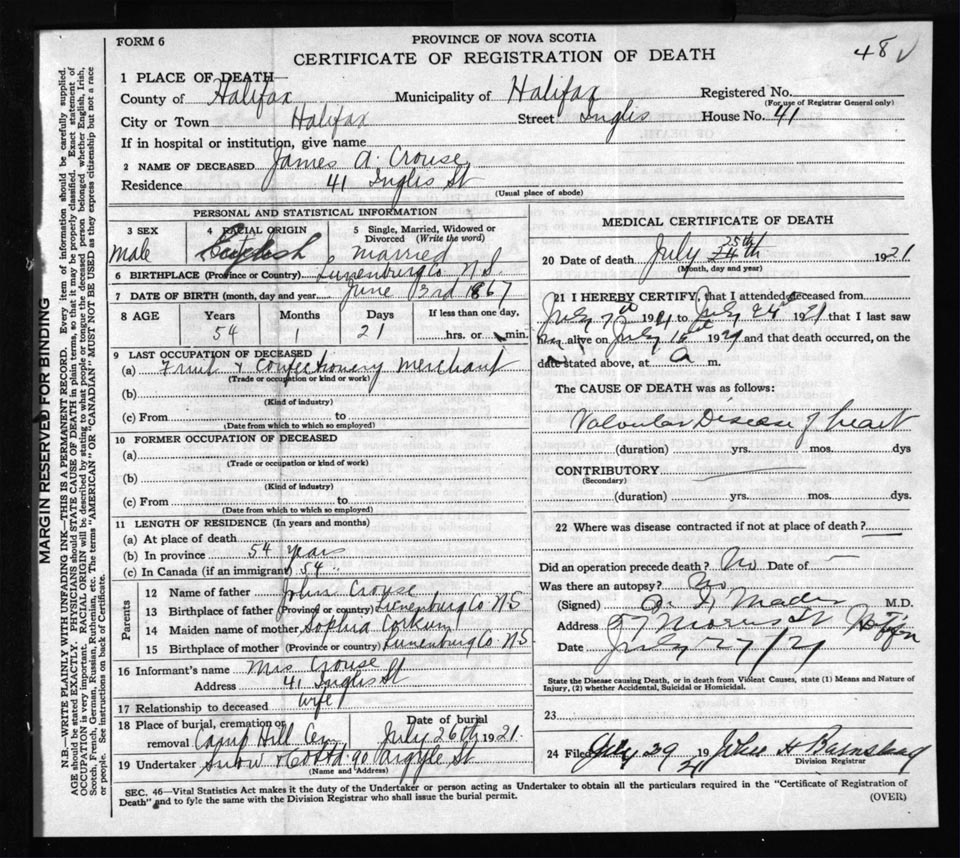 FORM 6
PROVINCE OF NOVA SCOTIA
CERTIFICATE OF REGISTRATION OF DEATH
48 √
1 PLACE OF DEATH—
County of Halifax Municipality of Halifax Registered No.
(For use of Registrar General only)
City or Town Halifax Street Inglis House No. 41
If in hospital or institution, give name
2 NAME OF DECEASED James A. Crouse
Residence 41 Inglis St
(Usual place of abode)
PERSONAL AND STATISTICAL INFORMATION
3 SEX 4 RACIAL ORIGIN 5 Single, Married, Widowed or Divorced (Write the word)
Male married
6 BIRTHPLACE (Province or Country) Lunenburg Co N.S.
7 DATE OF BIRTH (month, day and year) June 3rd 1867
8 AGE Years Months Days If less than one day,
54 1 21 hrs. or min.
9 LAST OCCUPATION OF DECEASED
(a) Fruit & Confectionery Merchant
(Trade or occupation or kind of work)
(b)
(Kind of industry)
(c) From to
(Date from which to which so employed)
10 FORMER OCCUPATION OF DECEASED
(a)
(Trade or occupation or kind of work)
(b)
(Kind of industry)
(c) From to
(Date from which to which so employed)
11 LENGTH OF RESIDENCE (In years and months)
(a) At place of death
(b) In province 54 years
(c) In Canada (if an immigrant) 54 "
Parents
12 Name of father John Crouse
13 Birthplace of father (Province or country) Lunenburg Co NS
14 Maiden name of mother Sophia Corkum
15 Birthplace of mother (Province or country) Lunenburg Co. NS
16 Informant's name Mrs Crouse
Address 41 Inglis St
17 Relationship to deceased wife
18 Place of burial, cremation or removal Camp Hill Cem Date of burial July 26th 1921.
19 Undertaker Snow & Co Ltd. 90 Argyle St
(Name and Address)
MEDICAL CERTIFICATE OF DEATH
25th
20 Date of death July 24th 1921
(Month, day and year)
21 I HEREBY CERTIFY, that I attended deceased from
July 7th 1921 to July 24th 1921 that I last saw
him alive on July 1921 and that death occurred, on the
date stated above, at m.
The CAUSE OF DEATH was as follows:
Valvular Disease of heart
(duration) yrs. mos. dys
CONTRIBUTORY
(Secondary)
(duration) yrs. mos. dys.
22 Where was disease contracted if not at place of death?
Did an operation precede death? No Date of —
Was there an autopsy? No
(Signed) Mader M.D.
Address 57 Morris St Halifax
Date July 27/21
State the Disease causing Death, or in death from Violent Causes, state (1) Means and Nature of
Injury, (2) whether Accidental, Suicidal or Homicidal.
23
24 Filed July 29 1921 John H Barnstead
Division Registrar
SEC. 46—Vital Statistics Act makes it the duty of the Undertaker or person acting as Undertaker to obtain all the particulars required in the "Certificate of Registration of
Death" and to fyle the same with the Division Registrar who shall issue the burial permit.
(OVER)
MARGIN RESERVED FOR BINDING
N.B.—WRITE PLAINLY WITH UNFADING INK—THIS IS A PERMANENT RECORD. Every item of information should be carefully supplied.
AGE should be stated EXACTLY. PHYSICIANS should STATE CAUSE OF DEATH in plain terms, so that it may be properly classified. Exact statement of
OCCUPATION is very important. RACIAL ORIGIN will be described by stating to what people or tongue the deceased person belonged whether English, Irish,
Scotch, French, German, Russian, Ruthenian, etc. The terms "AMERICAN" OR "CANADIAN" MUST NOT BE USED as they express citizenship but not a race
or people. See instructions on back of Certificate.